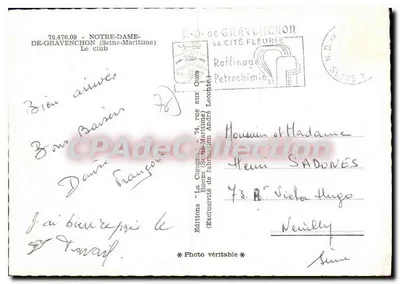 76.476.09 - NOTRE-DAME-
DE-GRAVENCHON (Seine-Maritime)
Le club
N.D. de GRAVENCHON
SA CITÉ FLEURIE
Raffinage
Petrochimie
Bien arrivés
(76)
Bons Baisers
François
J'ai bien repris le
Travail
Editions "La Cigogne", 74, rue aux Ours
Rouen (Seine-Maritime)
(Exclusivité de fabrication André Leconte)
Monsieur et Madame
Henri SADONES
73 R Victor Hugo
Neuilly
Seine
* Photo véritable *
CPADeCollection